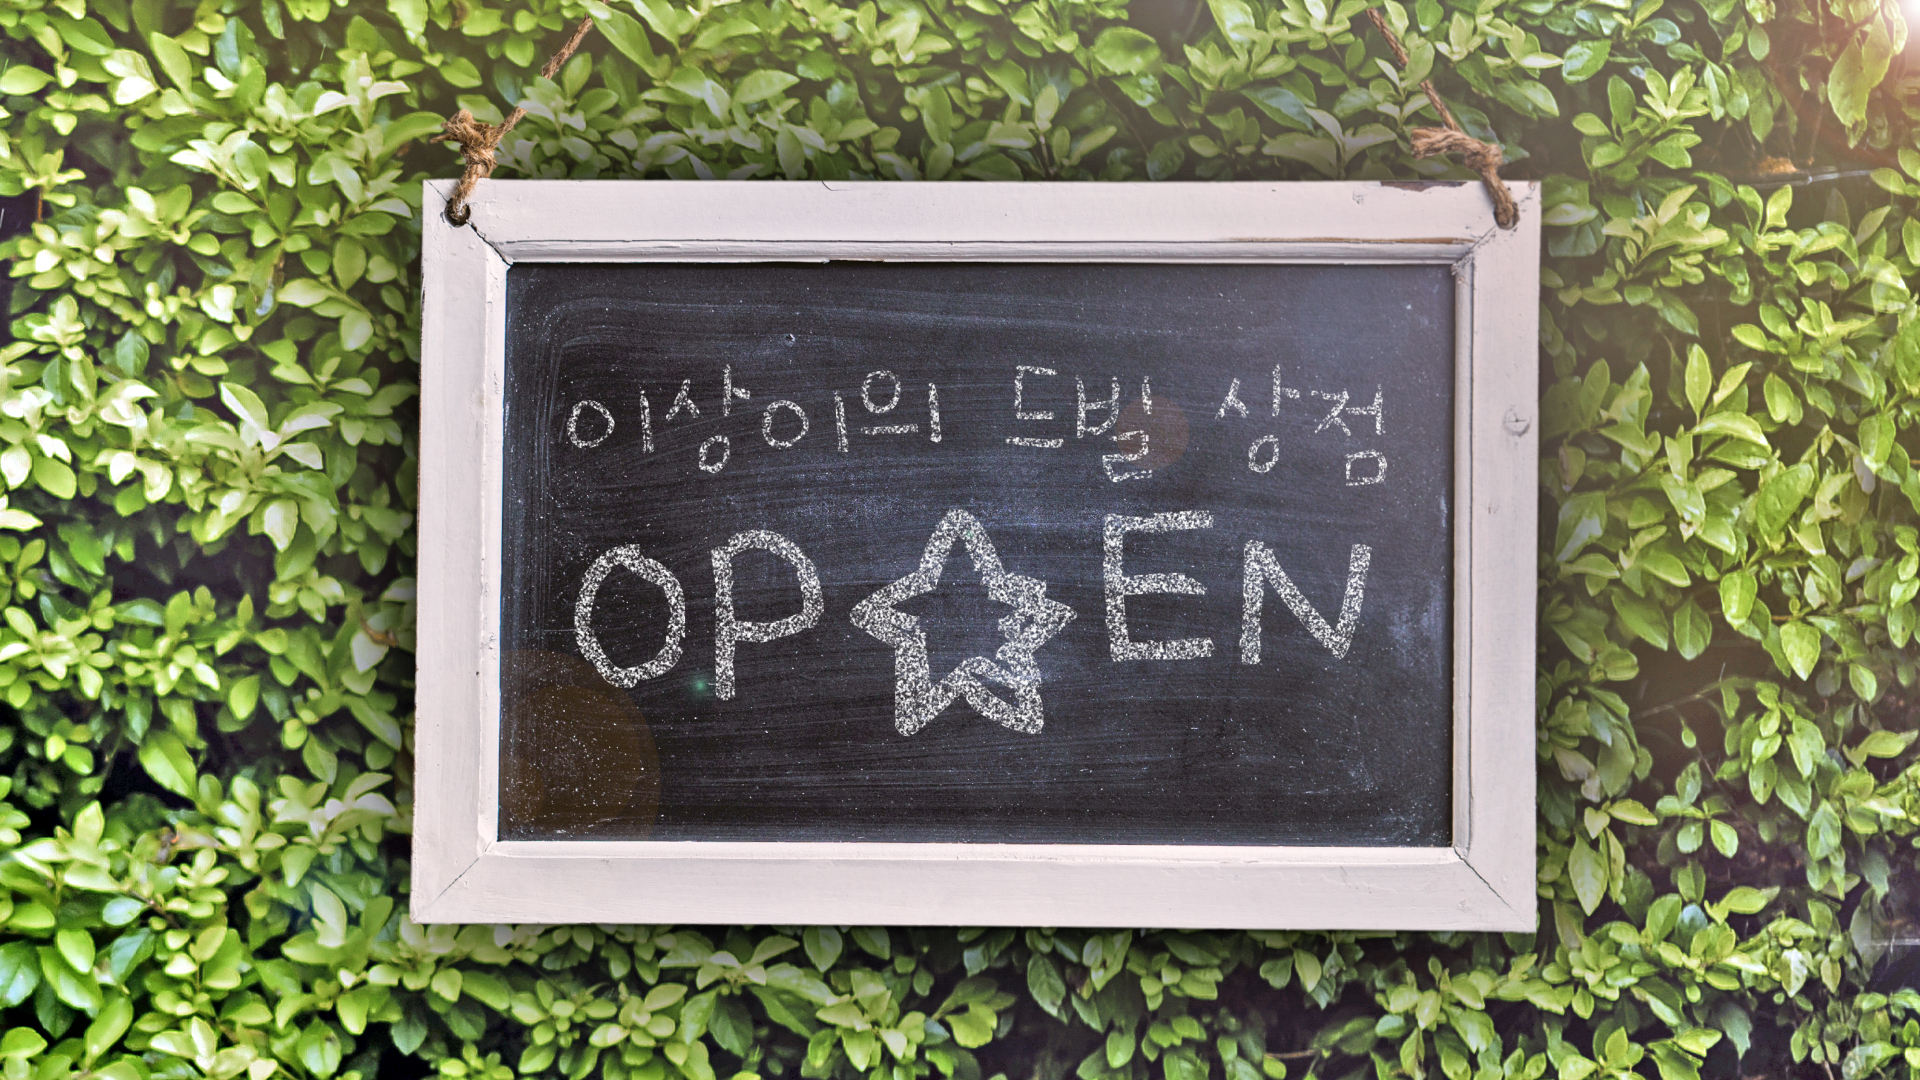 이상이의 드빌 상점
OP☆EN